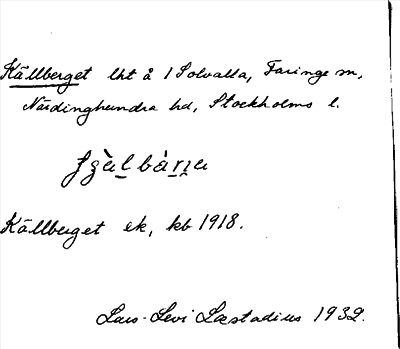 Källberget lht å 1 Solvalla, Faringe sn,
Närdinghundra hd, Stockholms l.
Källberget ek, kb 1918.
Lars-Levi Læstadius 1932.